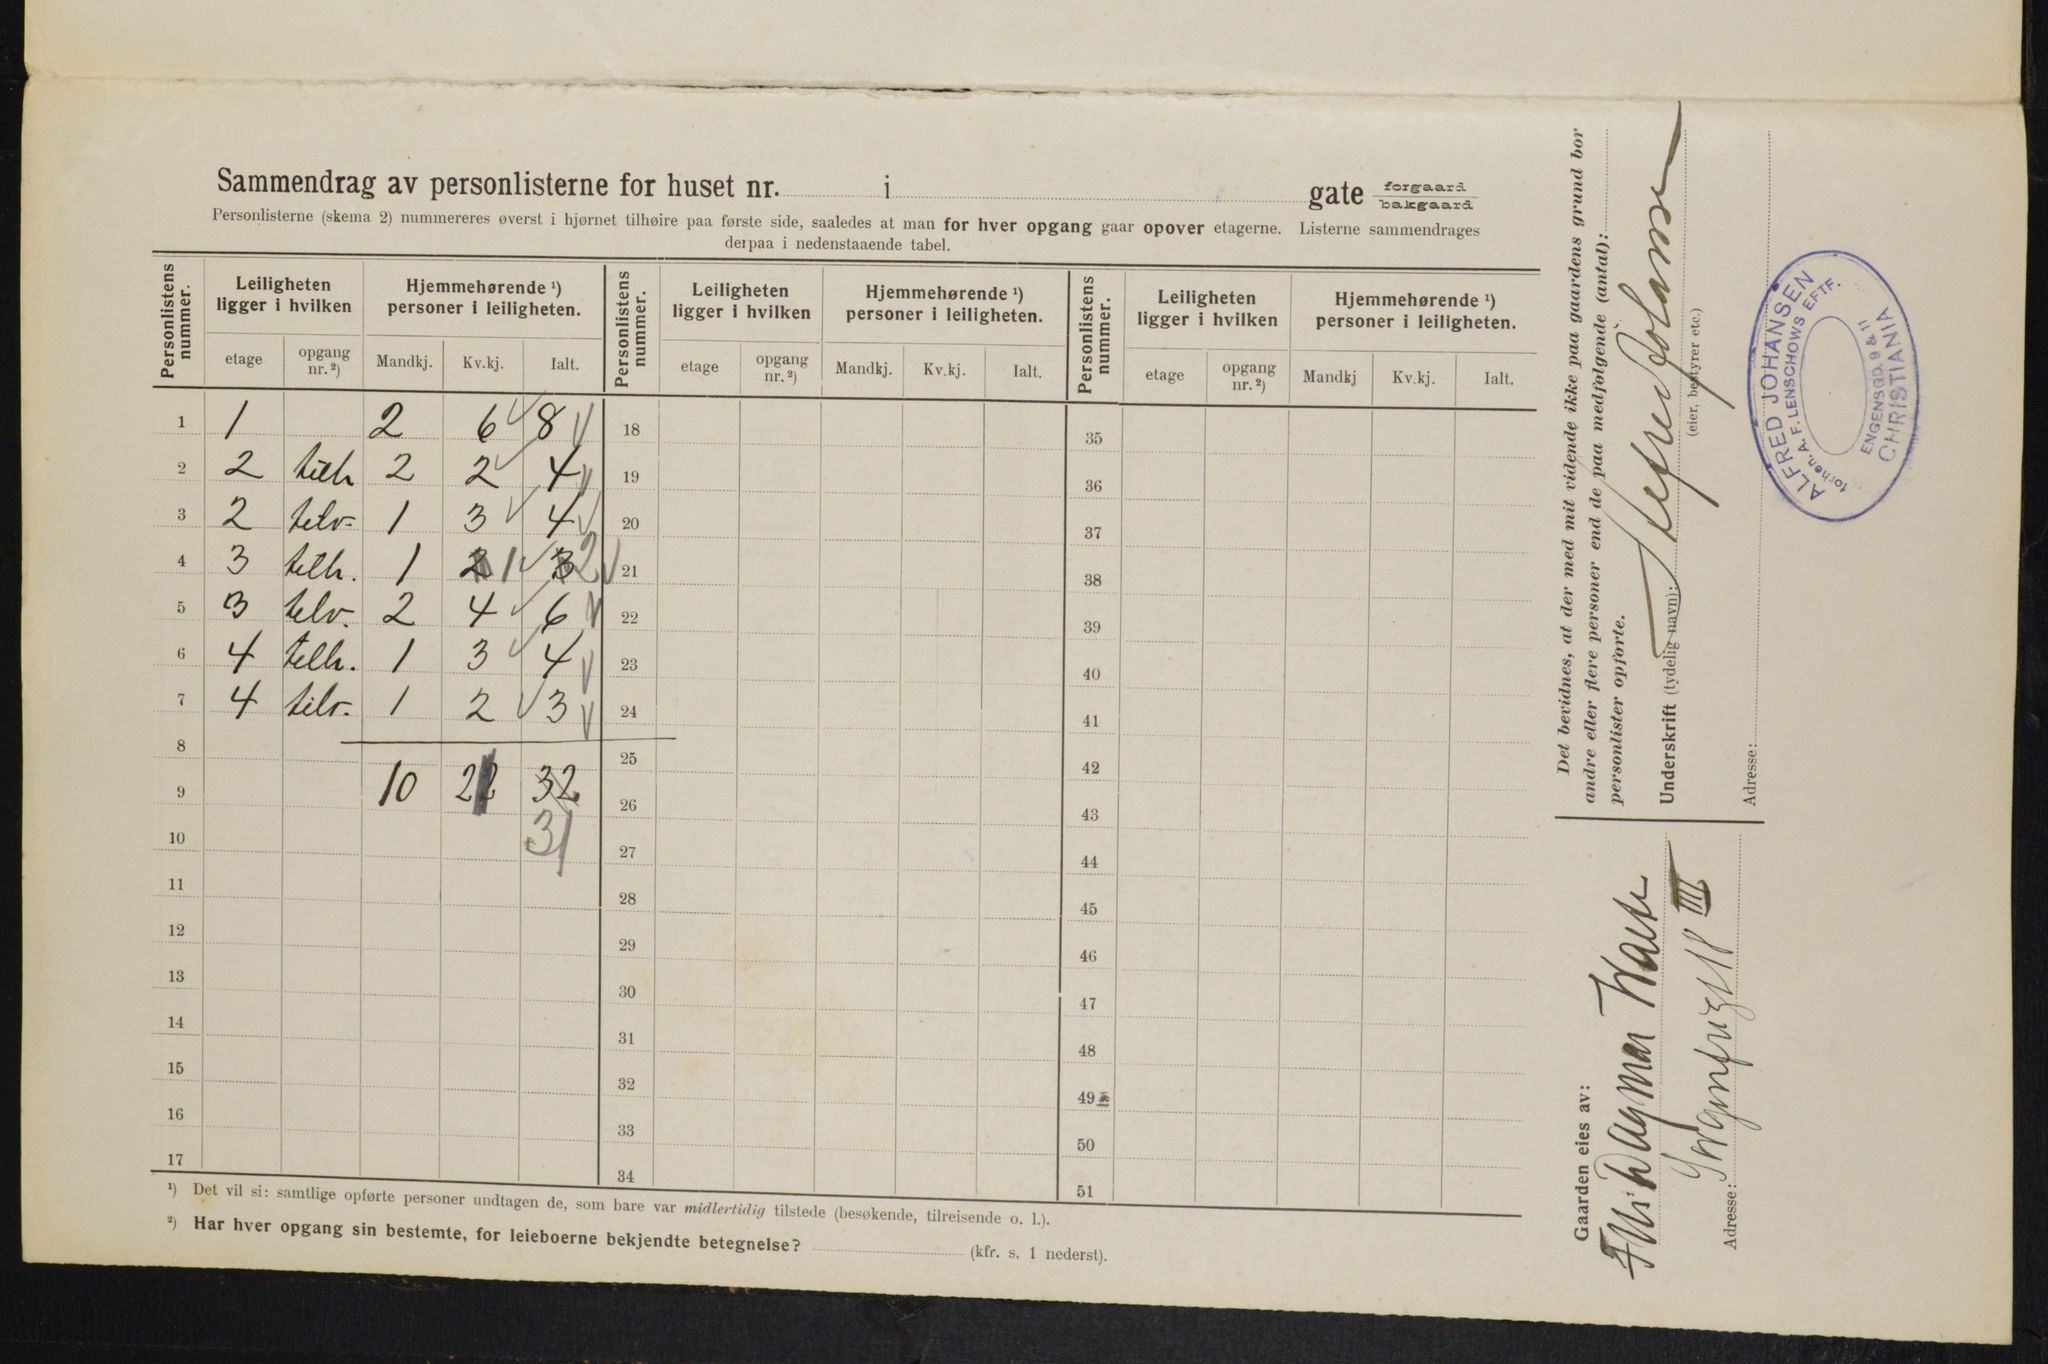 Sammendrag av personlisterne for huset nr. i gate forgaard bakgaard
Personlisterne (skema 2) nummereres øverst i hjørnet tilhøire paa første side, saaledes at man for hver opgang gaar opover etagerne. Listerne sammendrages
derpaa i nedenstaaende tabel.
Personlistens nummer. Leiligheten ligger i hvilken Hjemmehørende ¹) personer i leiligheten. Personlistens nummer. Leiligheten ligger i hvilken Hjemmehørende ¹) personer i leiligheten. Personlistens nummer. Leiligheten ligger i hvilken Hjemmehørende ¹) personer i leiligheten.
etage opgang nr. ²) Mandkj. Kv.kj. Ialt. etage opgang nr. ²) Mandkj. Kv.kj. Ialt. etage opgang nr. ²) Mandkj Kv.kj. Ialt.
1 1 2 6 8 18 35
2 2 tilh 2 2 4 19 36
3 2 tilv. 1 3 4 20 37
4 3 tilh. 1 2 1 3 2 21 38
5 3 tilv. 2 4 6 22 39
6 4 tilh. 1 3 4 23 40
7 4 tilv. 1 2 3 24 41
8 25 42
9 10 22 32 26 43
10 31 27 44
11 28 45
12 29 46
13 30 47
14 31 48
15 32 49
16 33 50
17 34 51
¹) Det vil si: samtlige opførte personer undtagen de, som bare var midlertidig tilstede (besøkende, tilreisende o. l.).
²) Har hver opgang sin bestemte, for leieboerne bekjendte betegnelse? (kfr. s. 1 nederst).
Det bevidnes, at der med mit vidende ikke paa gaardens grund bor
andre eller flere personer end de paa medfølgende (antal):
personlister opførte.
Underskrift (tydelig navn): Alfred Johansen
(eier, bestyrer etc.)
Adresse:
ALFRED JOHANSEN
forhen. A. F. LENSCHOWS EFTF.
ENGENSGD. 9 & 11
CHRISTIANIA
Gaarden eies av:
Dagmar
Adresse: Sorgenfrigt 18 III